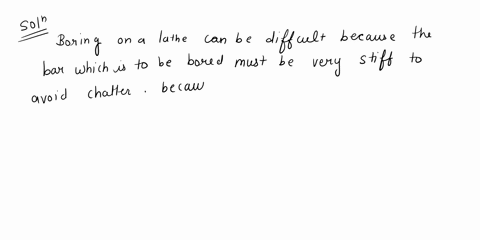 Solⁿ
Boring on a lathe can be diffcult because the
bar which is to be bored must be very stiff to
avoid chatter. becaw